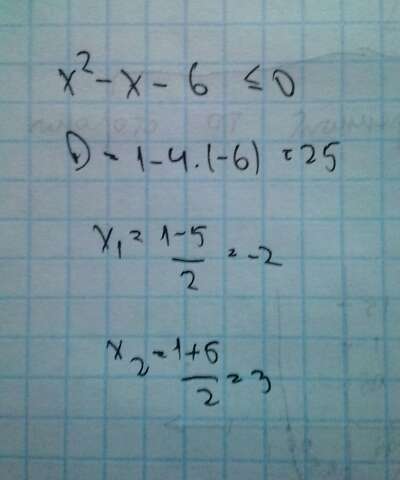 x² - x - 6 ≤ 0
D = 1 - 4 · (-6) = 25
x₁ = (1-5)/2 = -2
x₂ = (1+5)/2 = 3